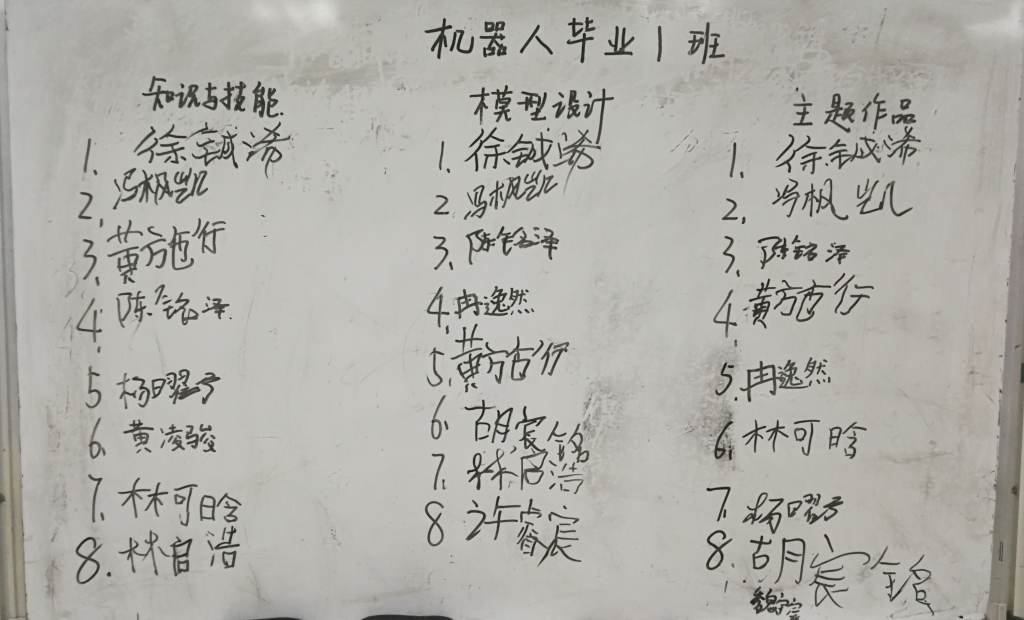 机器人毕业1班
知识与技能
1. 徐铖浠
2. 冯枫凯
3. 黄方也行
4. 陈铭泽
5 杨曜
6. 黄凌骏
7. 林可晗
8. 林启浩
模型设计
1. 徐铖浠
2. 冯枫凯
3. 陈铭泽
4. 冉逸然
5. 黄方也行
6. 胡宸铭
7. 林启浩
8 许睿宸
主题作品
1. 徐铖浠
2. 冯枫凯
3. 陈铭泽
4. 黄方也行
5. 冉逸然
6. 林可晗
7. 杨曜
8. 胡宸铭